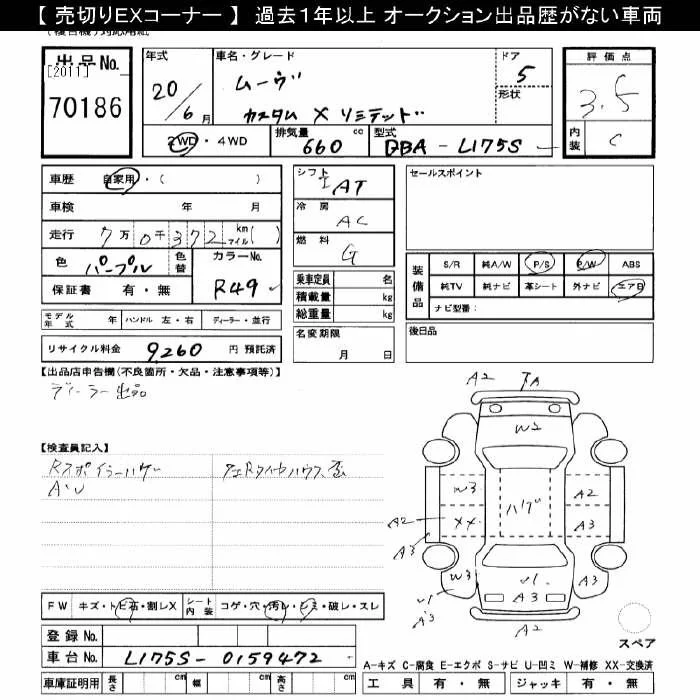 【 売切りEXコーナー 】 過去1年以上 オークション出品歴がない車両
出品No.
[2011]
70186
年式
20/6月
車名・グレード
ムーヴ
カスタム X リミテッド
ドア
5
形状
評価点
3.5
内装
C
2WD・4WD
排気量 660 cc
型式 DBA - L175S
車歴 自家用・( )
車検 年 月
走行 7万0千372 km マイル( )
色 パープル
色替
カラーNo.
R49
保証書 有・無
モデル年式 年 ハンドル 左・右 ディーラー・並行
リサイクル料金 9260 円 預託済
シフト
IAT
冷房
AC
燃料
G
乗車定員 名
積載量 kg
総重量 kg
名変期限
月 日
セールスポイント
装備品
S/R 純A/W P/S P/W ABS
純TV 純ナビ 革シート 外ナビ エアB
ナビ型番:
後日品
【出品店申告欄(不良箇所・欠品・注意事項等)】
ディーラー出品
【検査員記入】
Rスポイラーハゲ
A・U
FW キズ・トビ石・割レX
シート内装 コゲ・穴・汚レ・シミ・破レ・スレ
登録No.
車台No. L175S-0159472
車庫証明用 長さ cm 幅 cm 高さ cm
A2
A
W2
W3
ハゲ
A2
A2
XX
A3
A3
W3
U1
A3
U1
A3
A2
スペア
A-キズ C-腐食 E-エクボ S-サビ U-凹ミ W-補修 XX-交換済
工具 有・無 ジャッキ 有・無